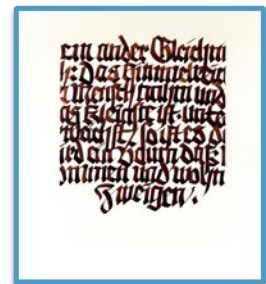 ein ander Gleichni
s: Das Himmelreic
Mensch nahm und
as kleinste ist unte
wächst, so ist es d
ird ein Baum daß
ommen und wohn
Zweigen.